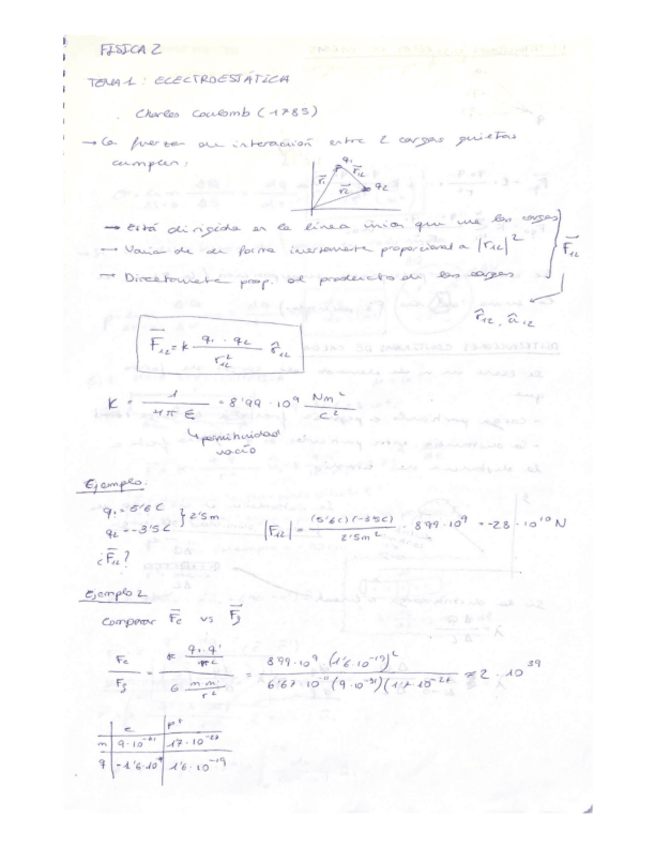 FÍSICA 2
TEMA 1: ELECTROESTÁTICA
Charles Coulomb (1785)
→ La fuerza de interacción entre 2 cargas quietas
cumplen:
q₁ r₁ r₁₂ r₂ q₂
→ Está dirigida en la línea que une las cargas
→ Varía de forma inversamente proporcional a |r₁₂|²
→ Directamente prop. al producto de las cargas
F₁₂
r̂₁₂, û₁₂
F₁₂ = k q₁ · q₂ / r₁₂² r̂₁₂
K = 1 / 4π ε = 8'99 · 10⁹ Nm² / C²
↳ permitividad
vacío
Ejemplo:
q₁ = 5'6 C
q₂ = -3'5 C } 2'5m
|F₁₂| = (5'6C)(-3'5C) / 2'5m² · 8'99 · 10⁹ = -28 · 10¹⁰ N
¿F₁₂?
Ejemplo 2
Comparar Fe vs Fg
Fe / Fg = K q · q' / r² / G m · m' / r² = 8'99 · 10⁹ · (1'6 · 10⁻¹⁹)² / 6'67 · 10⁻¹¹ (9 · 10⁻³¹)(1'7 · 10⁻²⁷) ≈ 2 · 10³⁹
e p⁺
m 9 · 10⁻³¹ 1'7 · 10⁻²⁷
q -1'6 · 10 1'6 · 10⁻¹⁹